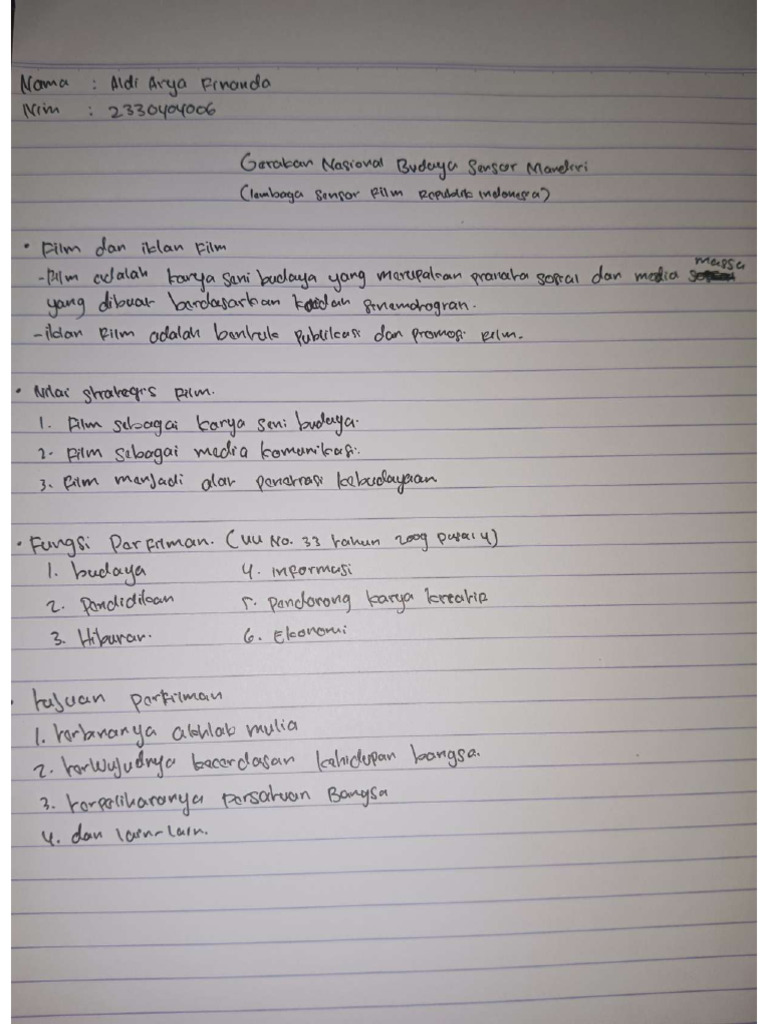 Nama : Aldi Arya Firnando
Nim : 2330404006
Gerakan Nasional Budaya Sensor Mandiri
(lembaga Sensor Film Republik indonesia)
• Film dan iklan Film
- Film adalah karya seni budaya yang merupakan pranata sosial dan media massa
yang dibuat berdasarkan kaidah sinematografi.
- iklan Film adalah bentuk publikasi dan promosi film.
• Nilai strategis film.
1. Film sebagai karya seni budaya.
2. Film sebagai media komunikasi.
3. Film menjadi alat penetrasi kebudayaan
• Fungsi Perfilman. (UU No. 33 tahun 2009 pasal 4)
1. budaya 4. informasi
2. Pendidikan 5. pendorong karya kreatif
3. Hiburan. 6. Ekonomi
• tujuan perfilman
1. terbinanya akhlab mulia
2. terwujudnya kecerdasan kehidupan bangsa.
3. terpeliharanya persatuan Bangsa
4. dan lain-lain.